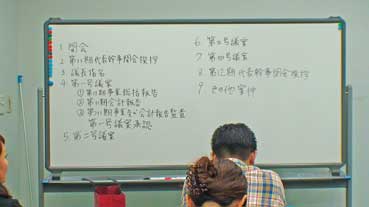 1. 開会
2. 第11期代表幹事開会挨拶
3. 議長指名
4. 第一号議案
① 第11期事業総括報告
② 第11期会計報告
③ 第11期事業及び会計報告監査
第一号議案承認
5. 第二号議案
6. 第三号議案
7. 第四号議案
8. 第12期代表幹事閉会挨拶
9. その他案件